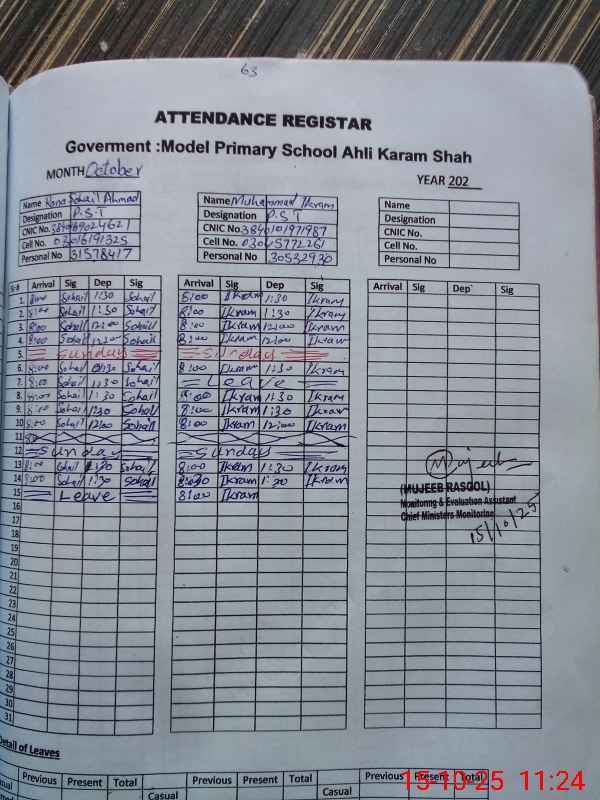 63
ATTENDANCE REGISTAR
Goverment :Model Primary School Ahli Karam Shah
MONTH October YEAR 202
Name Rana Sohail Ahmad Name Muhammad Ikram Name
Designation P.S.T Designation P.S.T Designation
CNIC No. CNIC No. 3840101971987 CNIC No.
Cell No. 03016191325 Cell No. 03045772261 Cell No.
Personal No 31578417 Personal No 30532930 Personal No
Sr# Arrival Sig Dep Sig Arrival Sig Dep Sig Arrival Sig Dep Sig
1. 8:00 Sohail 1:30 Sohail 8:00 Ikram 1:30 Ikram
2. 8:00 Sohail 1:30 Sohail 8:00 Ikram 1:30 Ikram
3. 8:00 Sohail 12:00 Sohail 8:00 Ikram 12:00 Ikram
4. 8:00 Sohail 12:00 Sohail 8:00 Ikram 12:00 Ikram
5. Sunday Sunday
6. 8:00 Sohail 1:30 Sohail 8:00 Ikram 1:30 Ikram
7. 8:00 Sohail 1:30 Sohail Leave
8. 8:00 Sohail 1:30 Sohail 8:00 Ikram 1:30 Ikram
9. 8:00 Sohail 1:30 Sohail 8:00 Ikram 1:30 Ikram
10 8:00 Sohail 12:00 Sohail 8:00 Ikram 12:00 Ikram
11
12 Sunday Sunday
13 8:00 Sohail 1:30 Sohail 8:00 Ikram 1:30 Ikram
14 8:00 Sohail 1:30 Sohail 8:00 Ikram 1:30 Ikram
15 Leave 8:00 Ikram
16
17
18
19
20
21
22
23
24
25
26
27
28
29
30
31
Mujeeb
(MUJEEB RASOOL)
Monitoring & Evaluation Assistant
Chief Ministers Monitoring
15/10/25
Detail of Leaves
Previous Present Total Previous Present Total Previous Present Total
Casual Casual
15-10-25 11:24